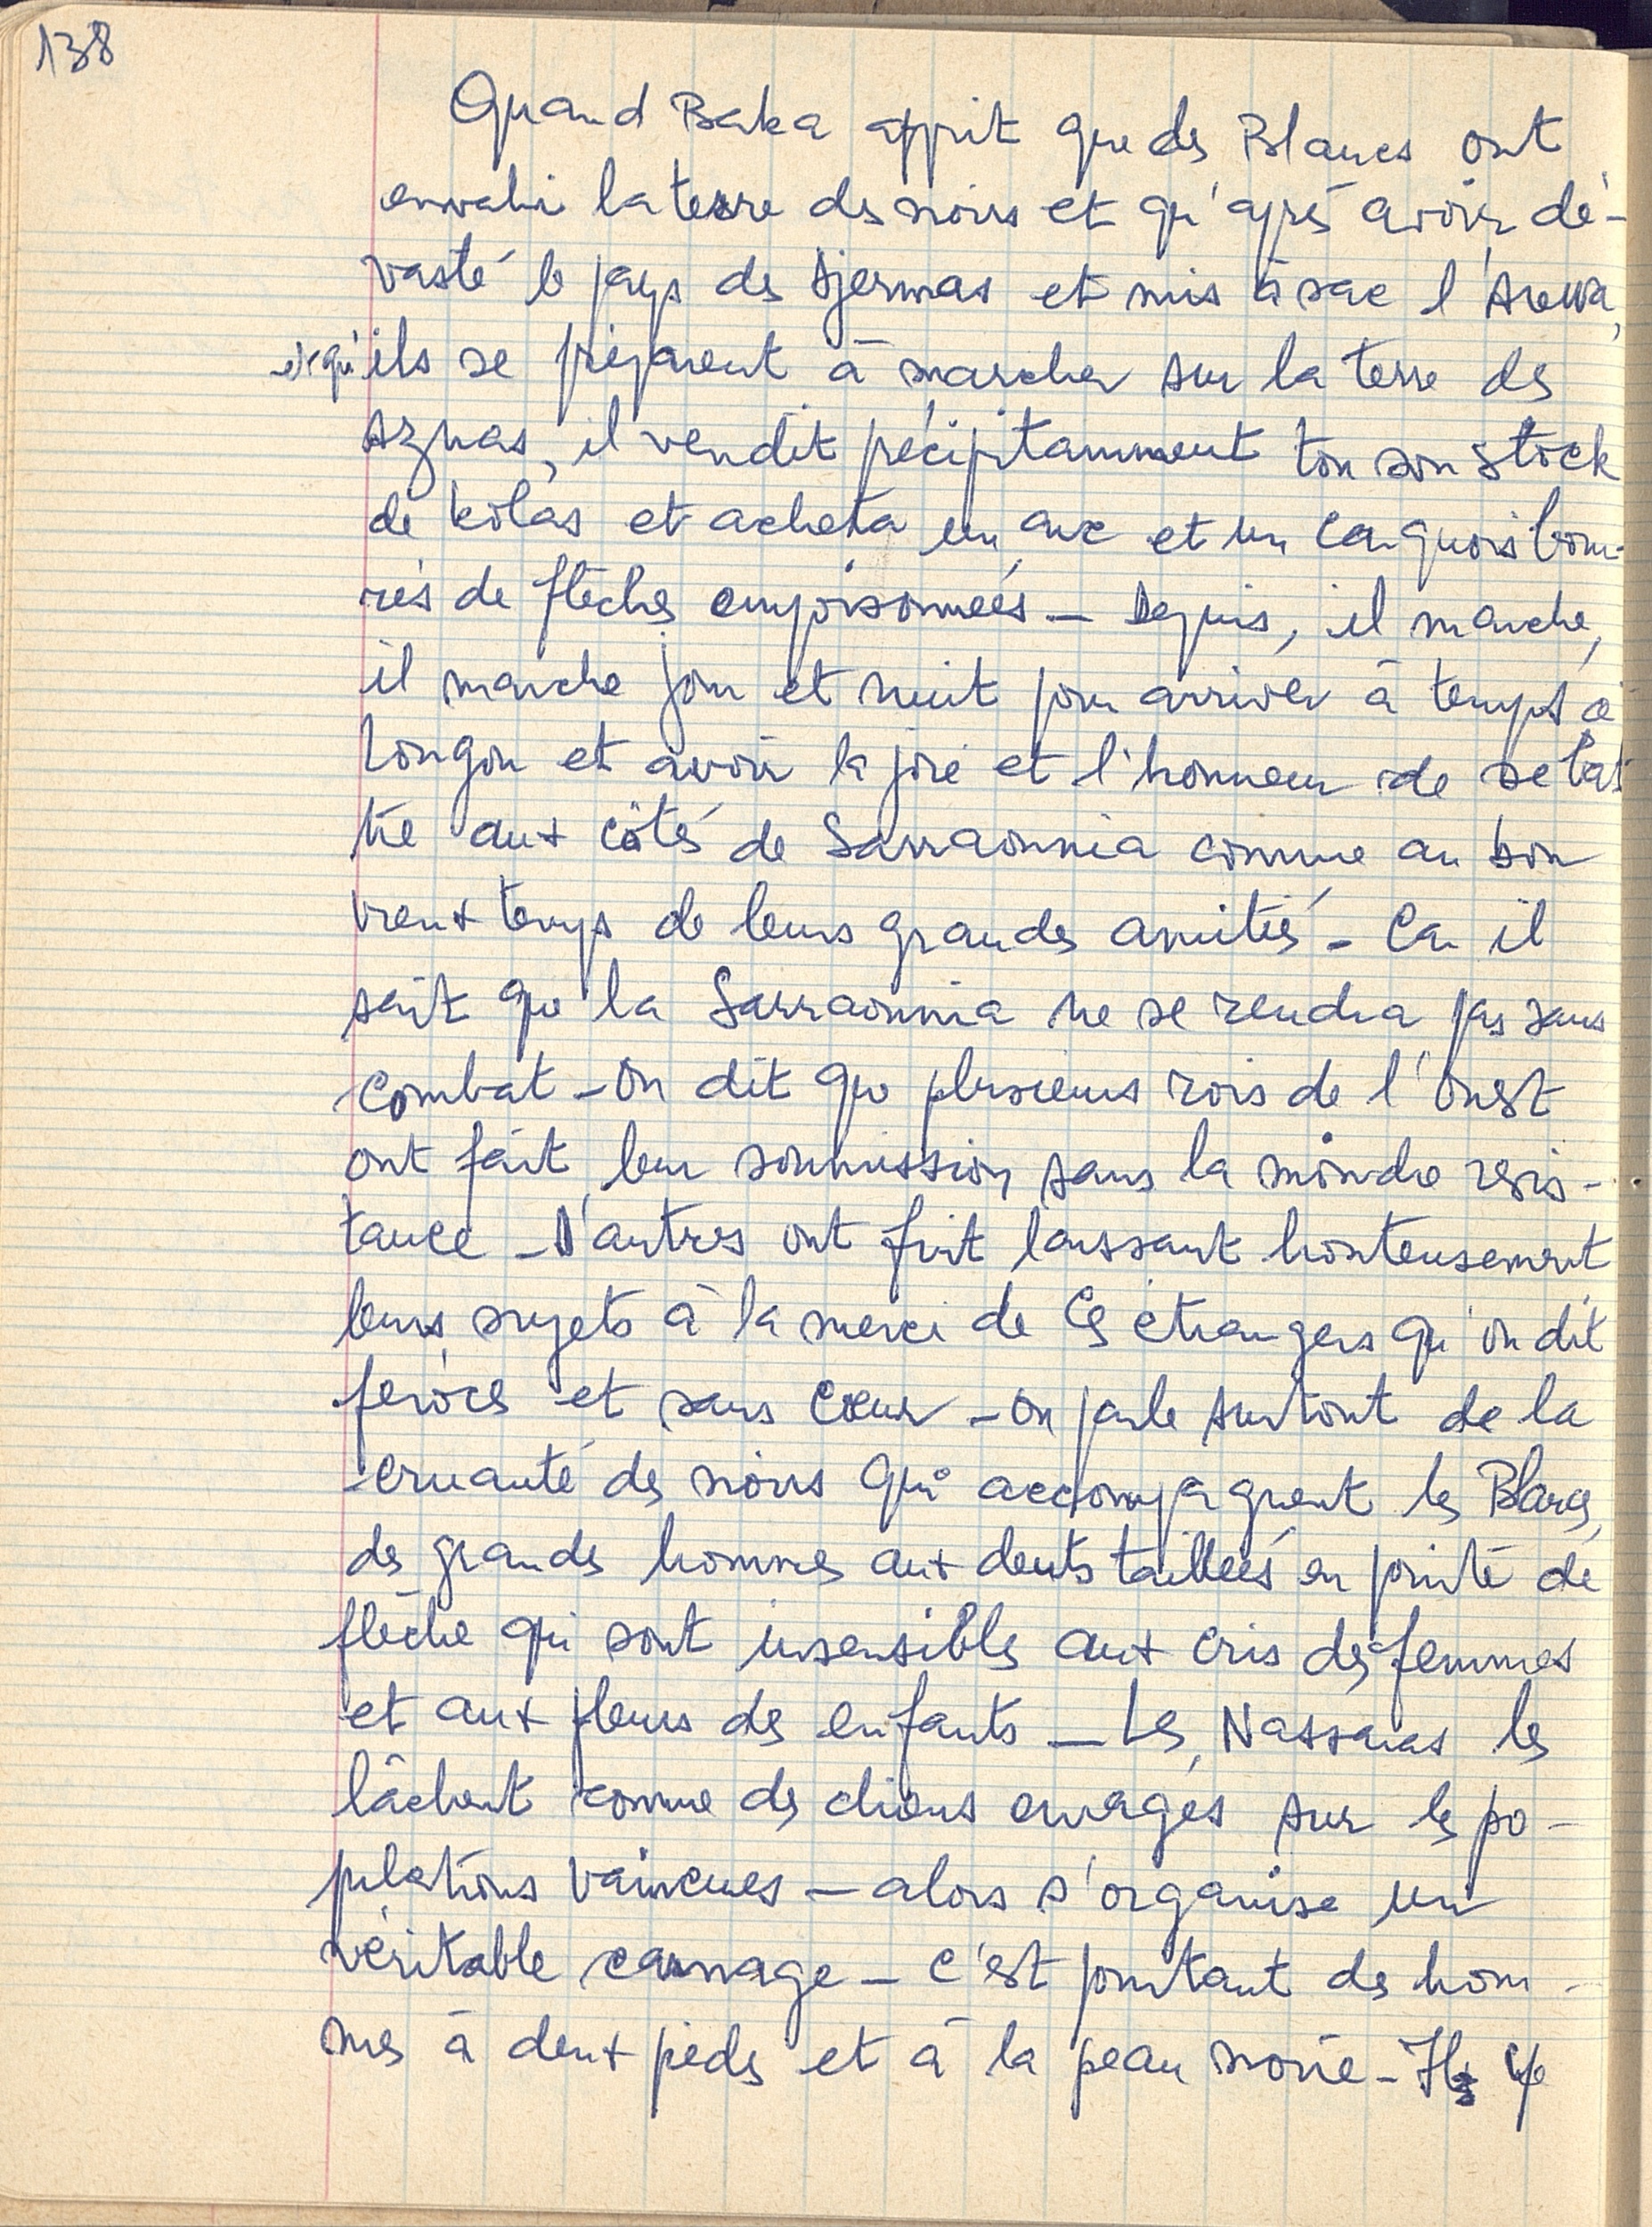 138
Quand Baka apprit que des Blancs ont
envahi la terre des noirs et qu'après avoir dé-
vasté le pays des Djermas et mis à sac l'Arewa,
et qu'ils se préparent à marcher sur la terre des
Aznas, il vendit précipitamment tou son stock
de kolas et acheta un arc et un carquois bour-
rés de flèches empoisonnées – Depuis, il marche,
il marche jour et nuit pour arriver à temps à
Lougou et avoir la joie et l'honneur de se bat
tre aux côtés de Sarraounia comme au bon
vieux temps de leurs grandes amitiés – Car il
sait que la Sarraounia ne se rendra pas sans
combat – On dit que plusieurs rois de l'Ouest
ont fait leur soumission sans la moindre résis-
tance – D'autres ont fuit laissant honteusement
leurs sujets à la merci de ces étrangers qu'on dit
féroces et sans cœur – On parle surtout de la
cruauté des noirs qui accompagnent les Blancs,
des grands hommes aux dents taillées en pointe de
flèche qui sont insensibles aux cris des femmes
et aux pleurs des enfants – Les Nassaras les
lâchent comme des chiens enragés sur les po-
pulations vaincues – alors s'organise un
véritable carnage – C'est pourtant des hom-
mes à deux pieds et à la peau noire – Ils